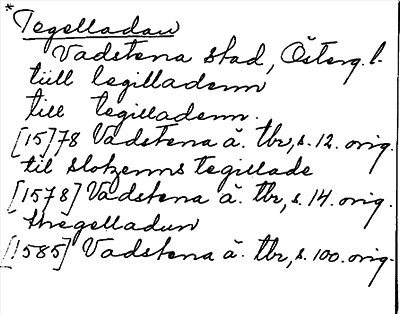 * Tegelladan
Vadstena stad, Österg. l.
tiill tegilladenn
till tegilladenn.
[15]78 Vadstena ä. tbr, s. 12. orig.
til slotzenns tegillade
[1578] Vadstena ä. tbr, s. 14. orig.
thegelladun
[1585] Vadstena ä. tbr, s. 100. orig.